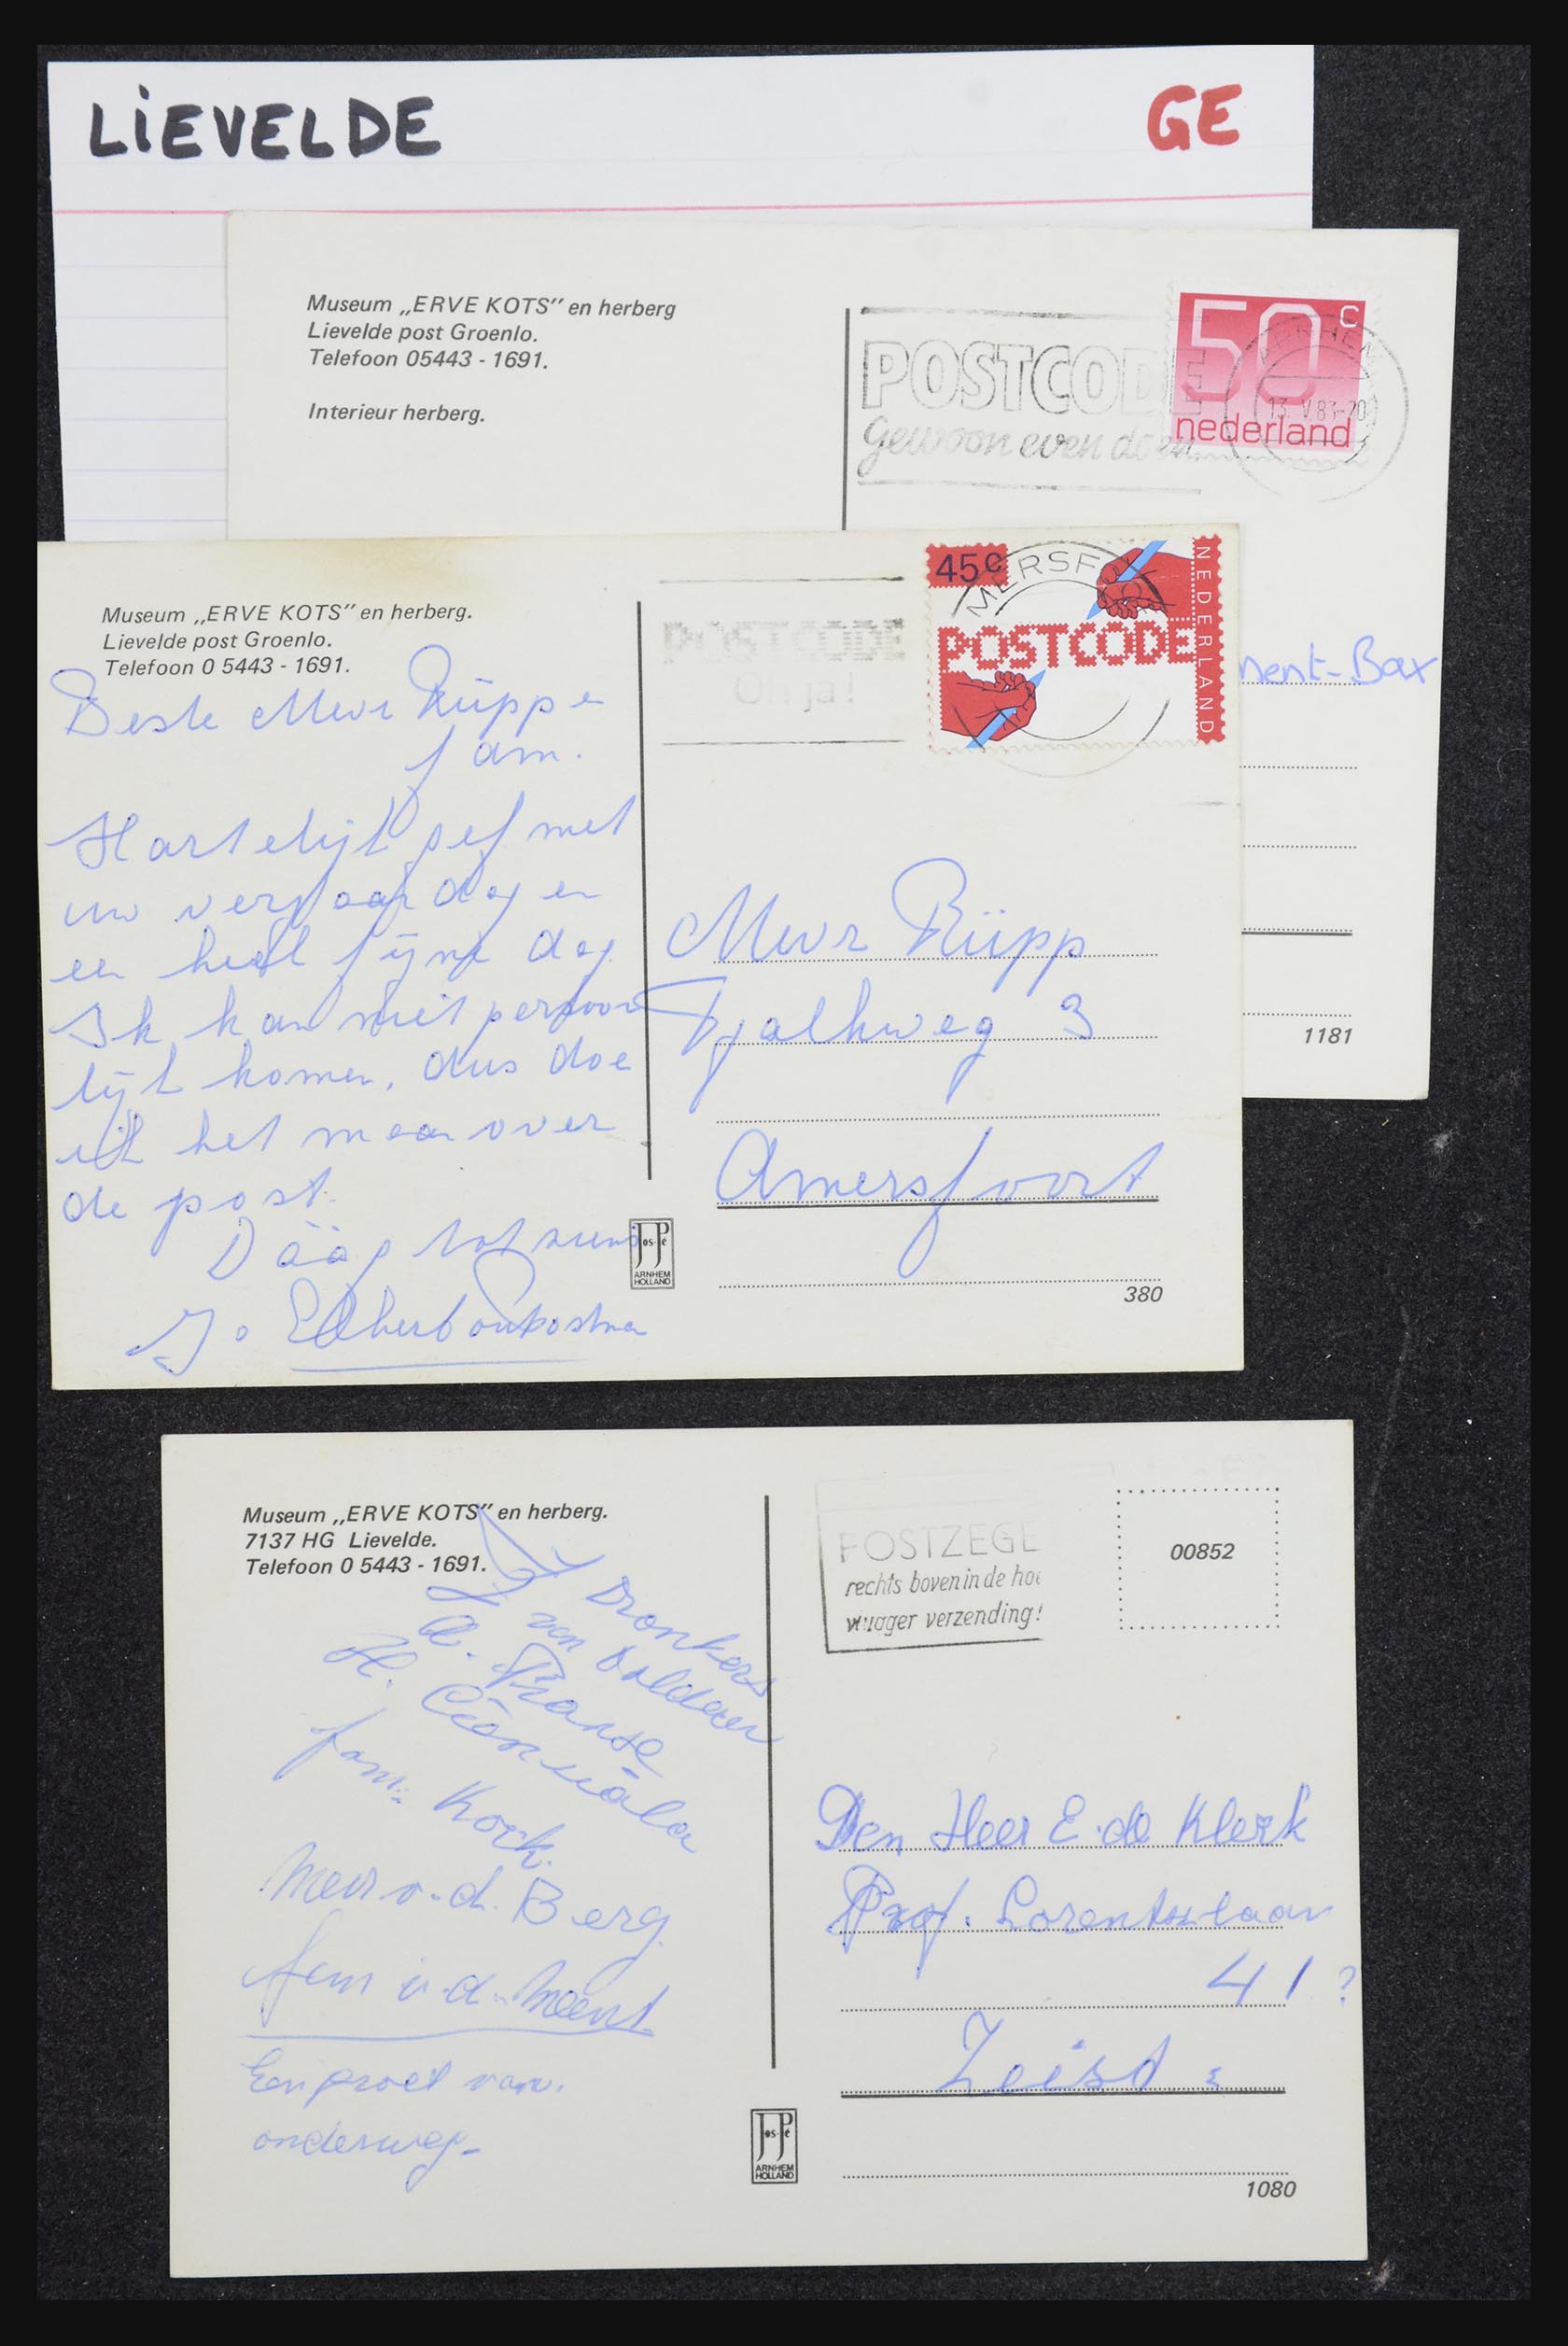 LiEVELDE
GE
Museum „ERVE KOTS” en herberg
Lievelde post Groenlo.
Telefoon 05443 - 1691.
Interieur herberg.
POSTCODE
gewoon even doen
50 c
nederland
13. V.83-20
nent-Bax
1181
Museum „ERVE KOTS” en herberg.
Lievelde post Groenlo.
Telefoon 0 5443 - 1691.
POSTCODE
Oh ja!
45c
POSTCODE
NEDERLAND
MERSF
Beste Mevr Rüpp en
fam.
Hartelijk gef met
uw verjaardag en
een heel fijne dag.
Ik kan niet persoon
lijk komen, dus doe
ik het maar over
de post.
Dääg tot ziens
Jo
Mevr Rüpp
Tjalkweg 3
Amersfoort
Jos-Pé
ARNHEM
HOLLAND
380
Museum „ERVE KOTS” en herberg.
7137 HG Lievelde.
Telefoon 0 5443 - 1691.
POSTZEGE
rechts boven in de hoe
vlugger verzending!
00852
Dronkers
van
H.
fam. Kock.
Mevr v.d. Berg.
fam v.d. Meent
Een groet van.
onderweg-
Den Heer E. de Klerk
Prof. Lorentzlaan
41 ?
Zeist
Jos-Pé
ARNHEM
HOLLAND
1080